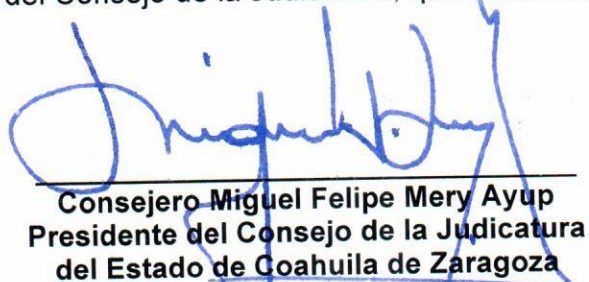 del Consejo de la
Consejero Miguel Felipe Mery Ayup
Presidente del Consejo de la Judicatura
del Estado de Coahuila de Zaragoza